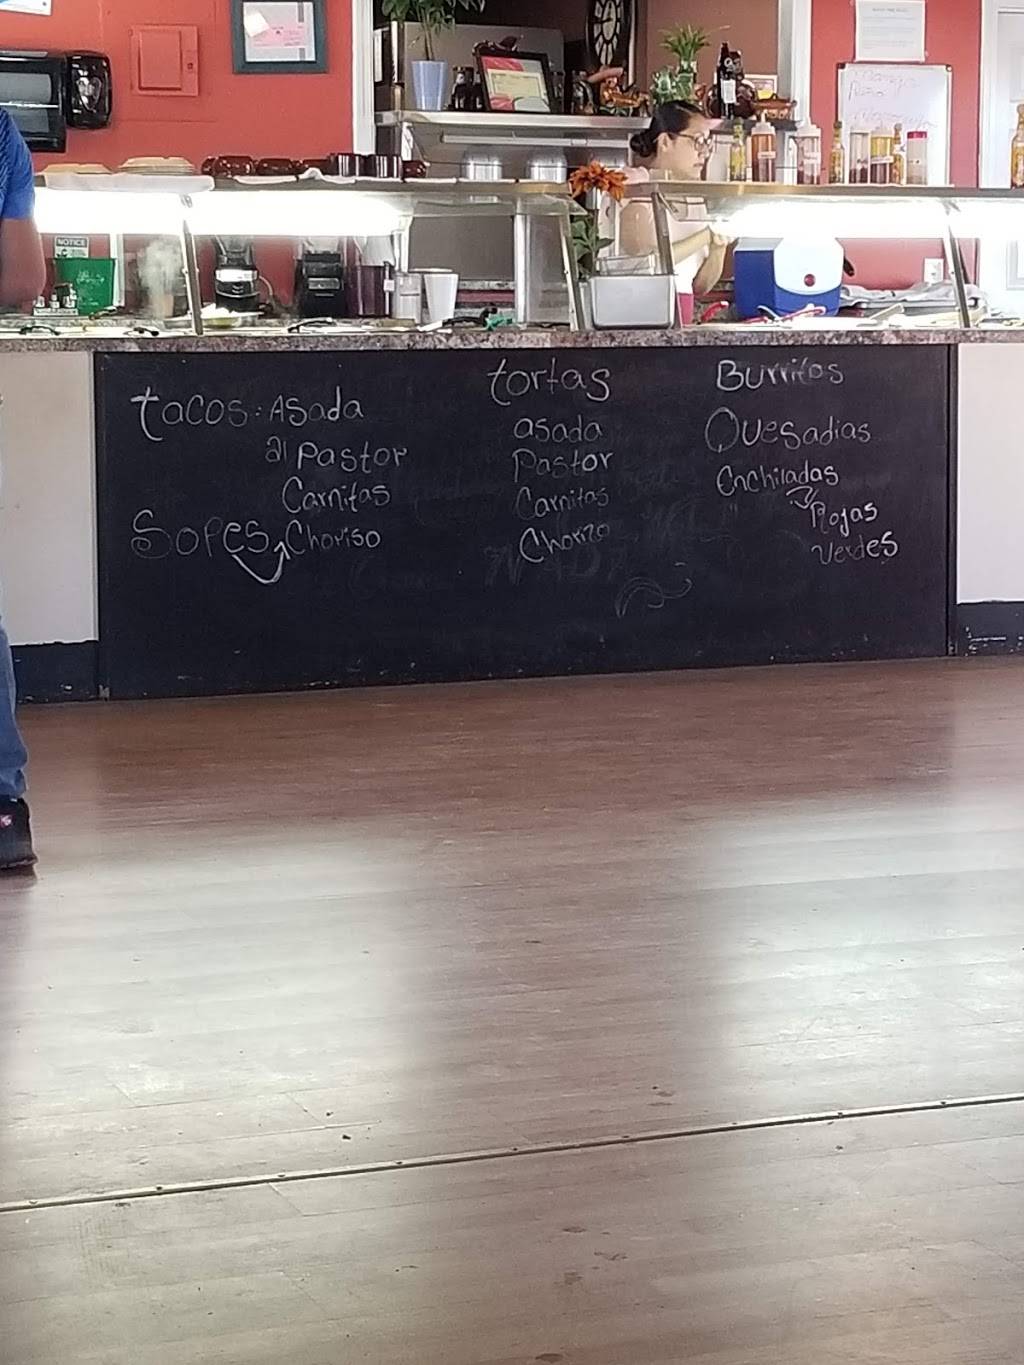 NOTICE
tacos: Asada
al Pastor
Carnitas
Sopes Choriso
tortas
asada
Pastor
Carnitas
Chorizo
Burritos
Quesadias
Enchiladas
Rojas
Verdes